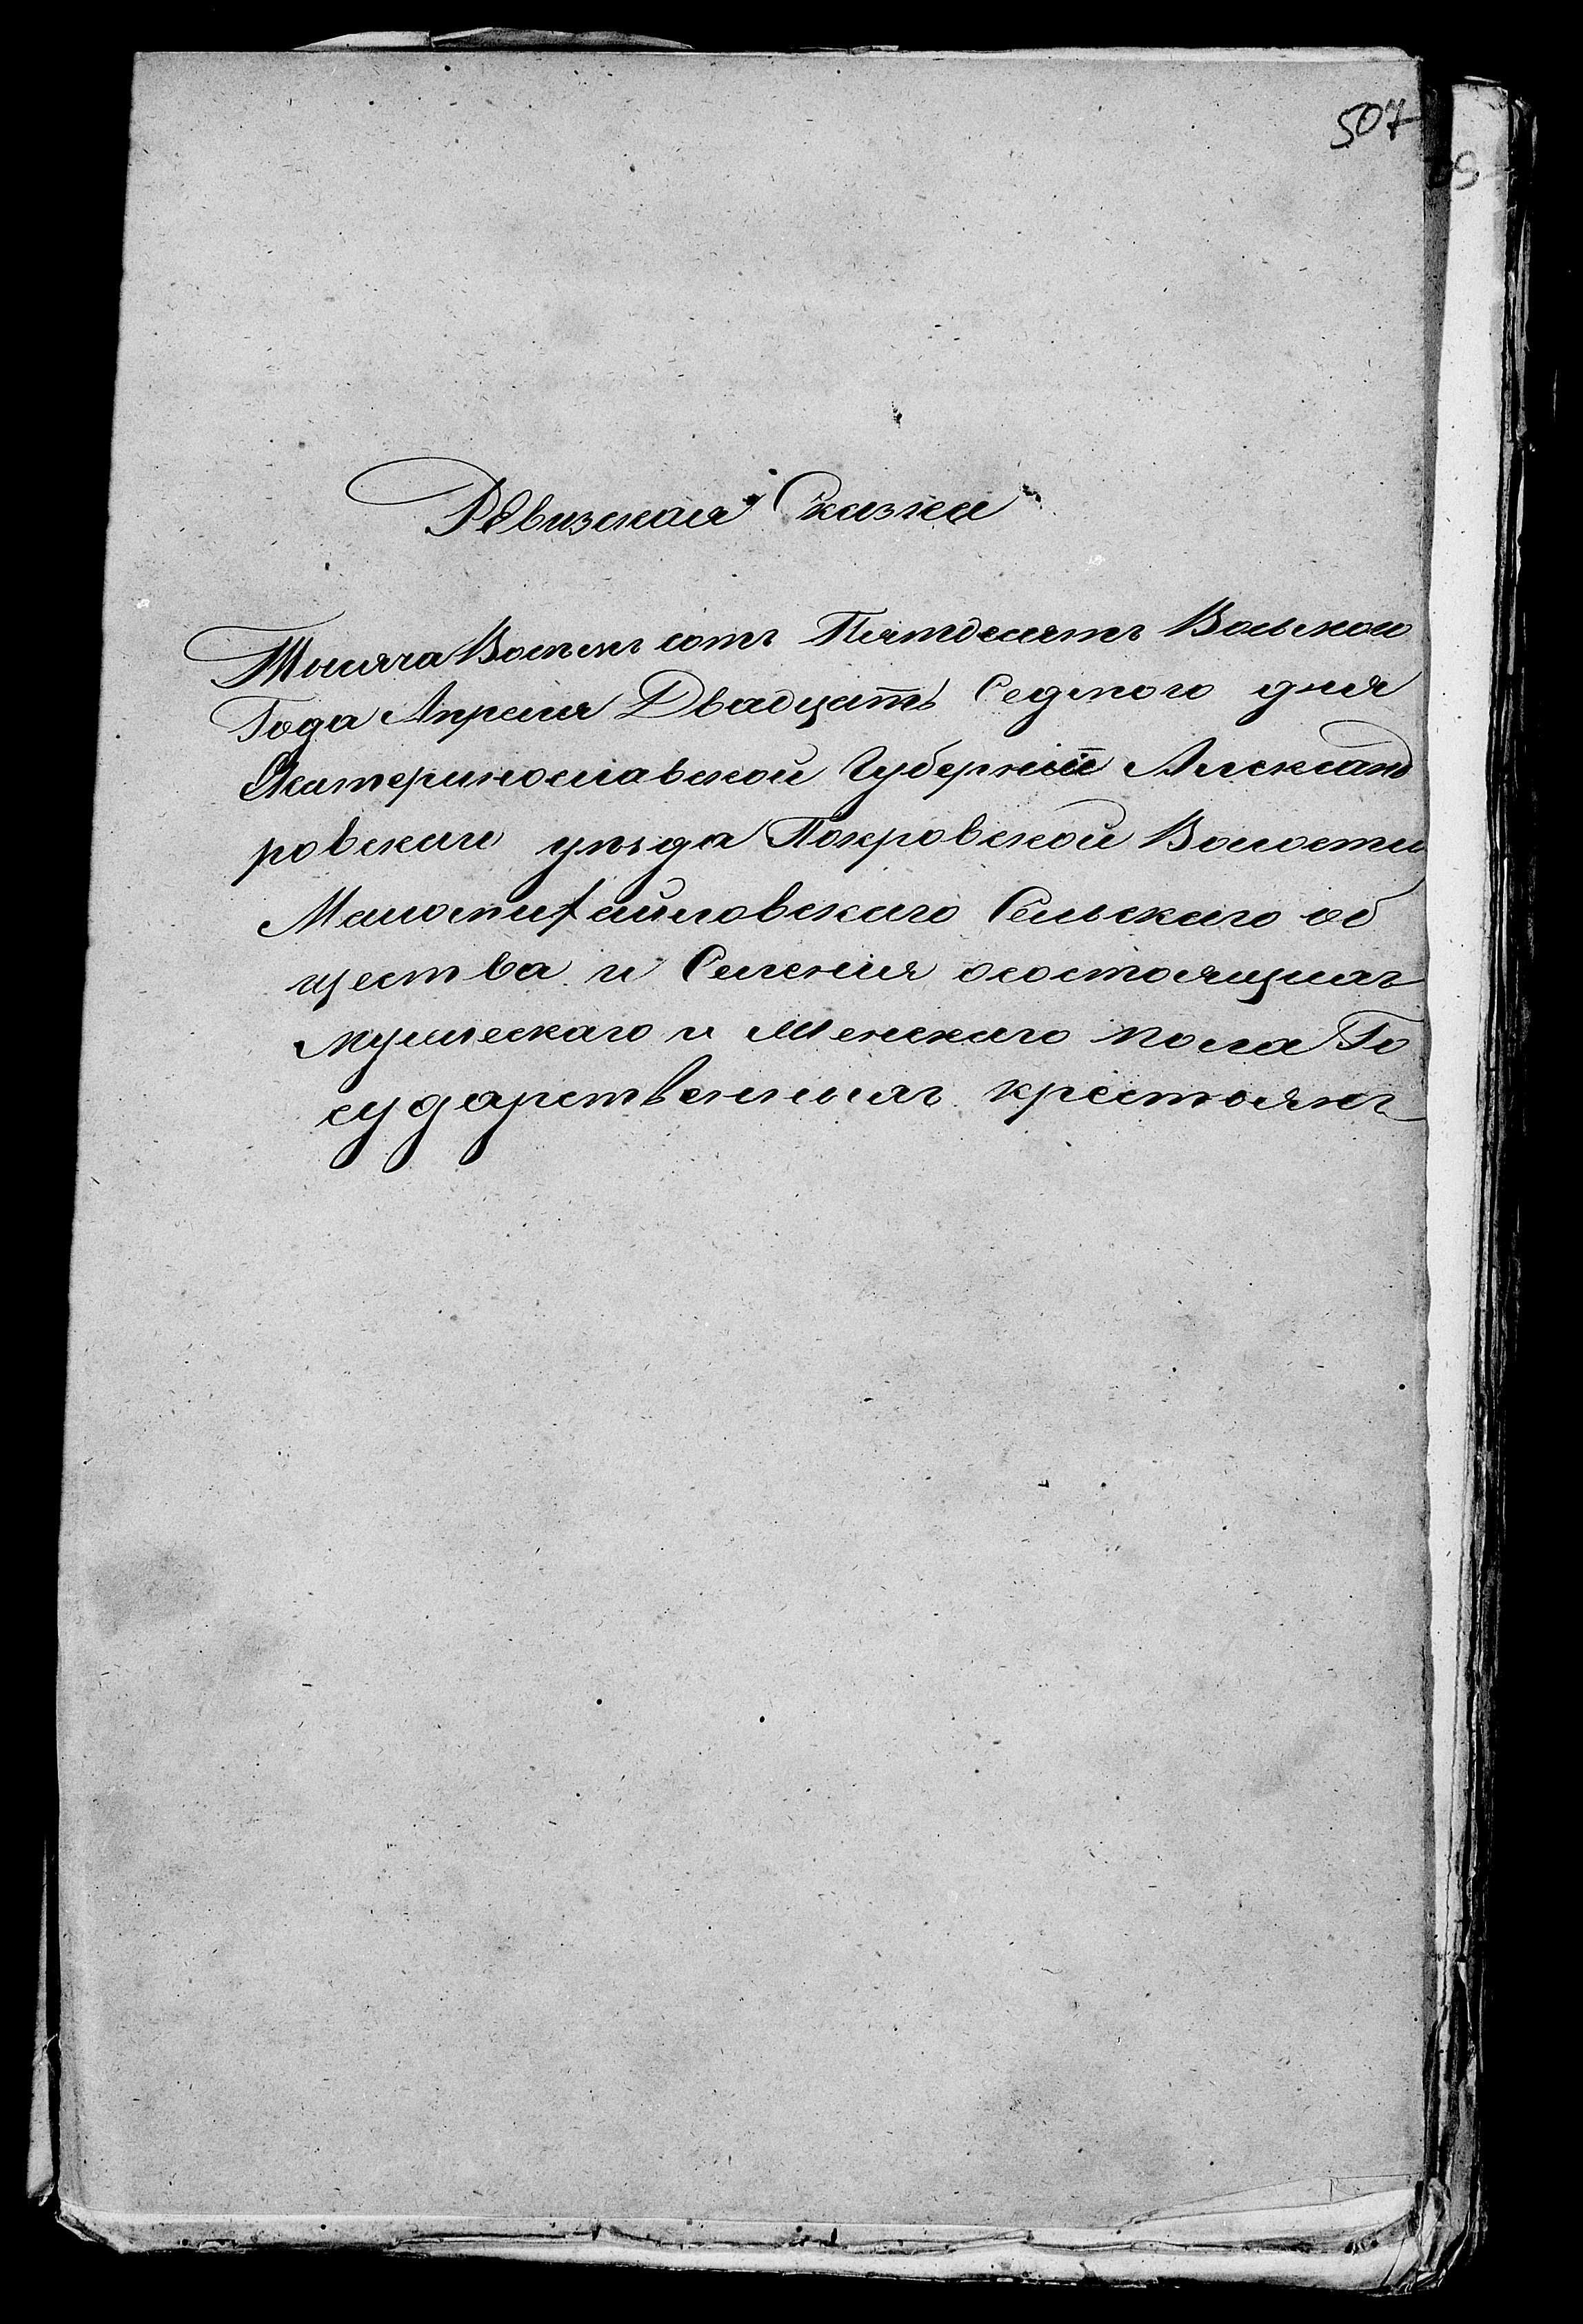 507
Ревизская Сказка
Тысяча Восемь сотъ Пятдесятъ Восьмаго
Года Апреля Двадцать Седмого дня
Екатеринославской Губерніи Александ
ровскаго уезда Покровской Волости
Маломихайловскаго Сельскаго об
щества и Селенія осостоящихъ
мужескаго и Женскаго пола Го
сударственныхъ крестоянъ